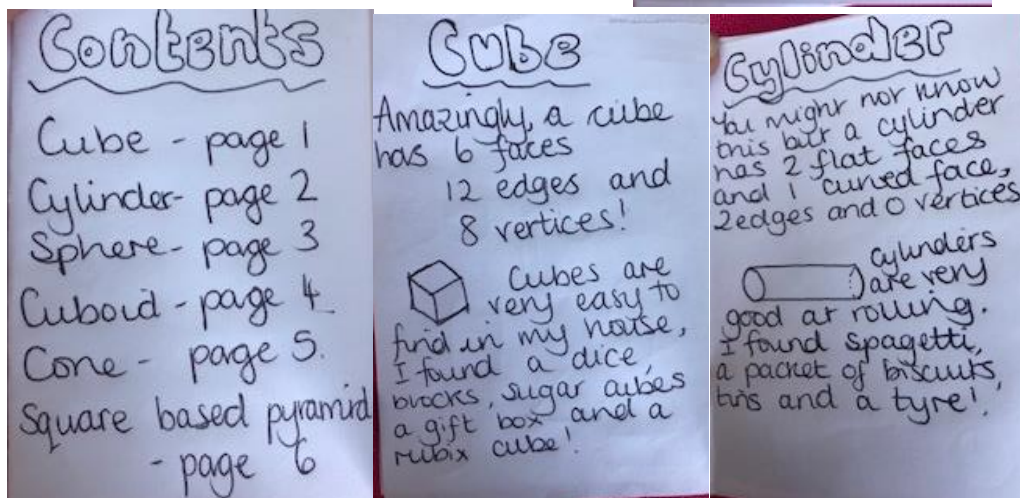 Contents
Cube - page 1
Cylinder- page 2
Sphere- page 3
Cuboid - page 4
Cone - page 5.
Square based pyramid
- page 6
Cube
Amazingly, a cube
has 6 faces
12 edges and
8 vertices!
Cubes are
very easy to
find in my house,
I found a dice,
blocks, sugar cubes
a gift box and a
rubix cube!
Cylinder
You might not know
this but a cylinder
has 2 flat faces
and 1 curved face,
2 edges and 0 vertices
cylinders
are very
good at rolling.
I found spagetti,
a packet of biscuits,
tins and a tyre!